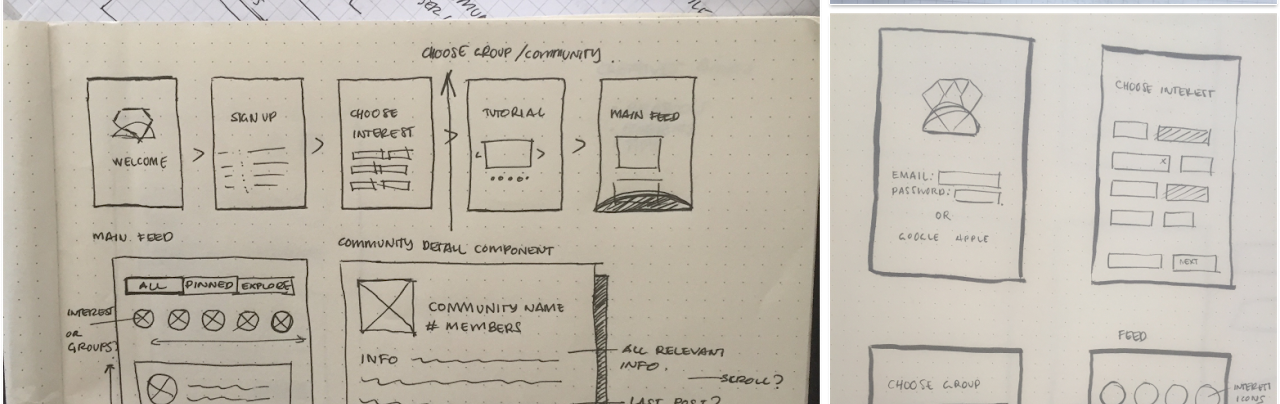 CHOOSE GROUP/COMMUNITY
WELCOME
SIGN UP
CHOOSE
INTEREST
TUTORIAL
MAIN FEED
MAIN FEED
ALL
PINNED
EXPLORE
INTEREST
OR
GROUPS?
COMMUNITY DETAIL COMPONENT
COMMUNITY NAME
# MEMBERS
INFO
ALL RELEVANT
INFO.
SCROLL?
LAST POST?
EMAIL:
PASSWORD:
OR
GOOGLE APPLE
CHOOSE INTEREST
x
NEXT
CHOOSE GROUP
FEED
INTEREST
ICONS